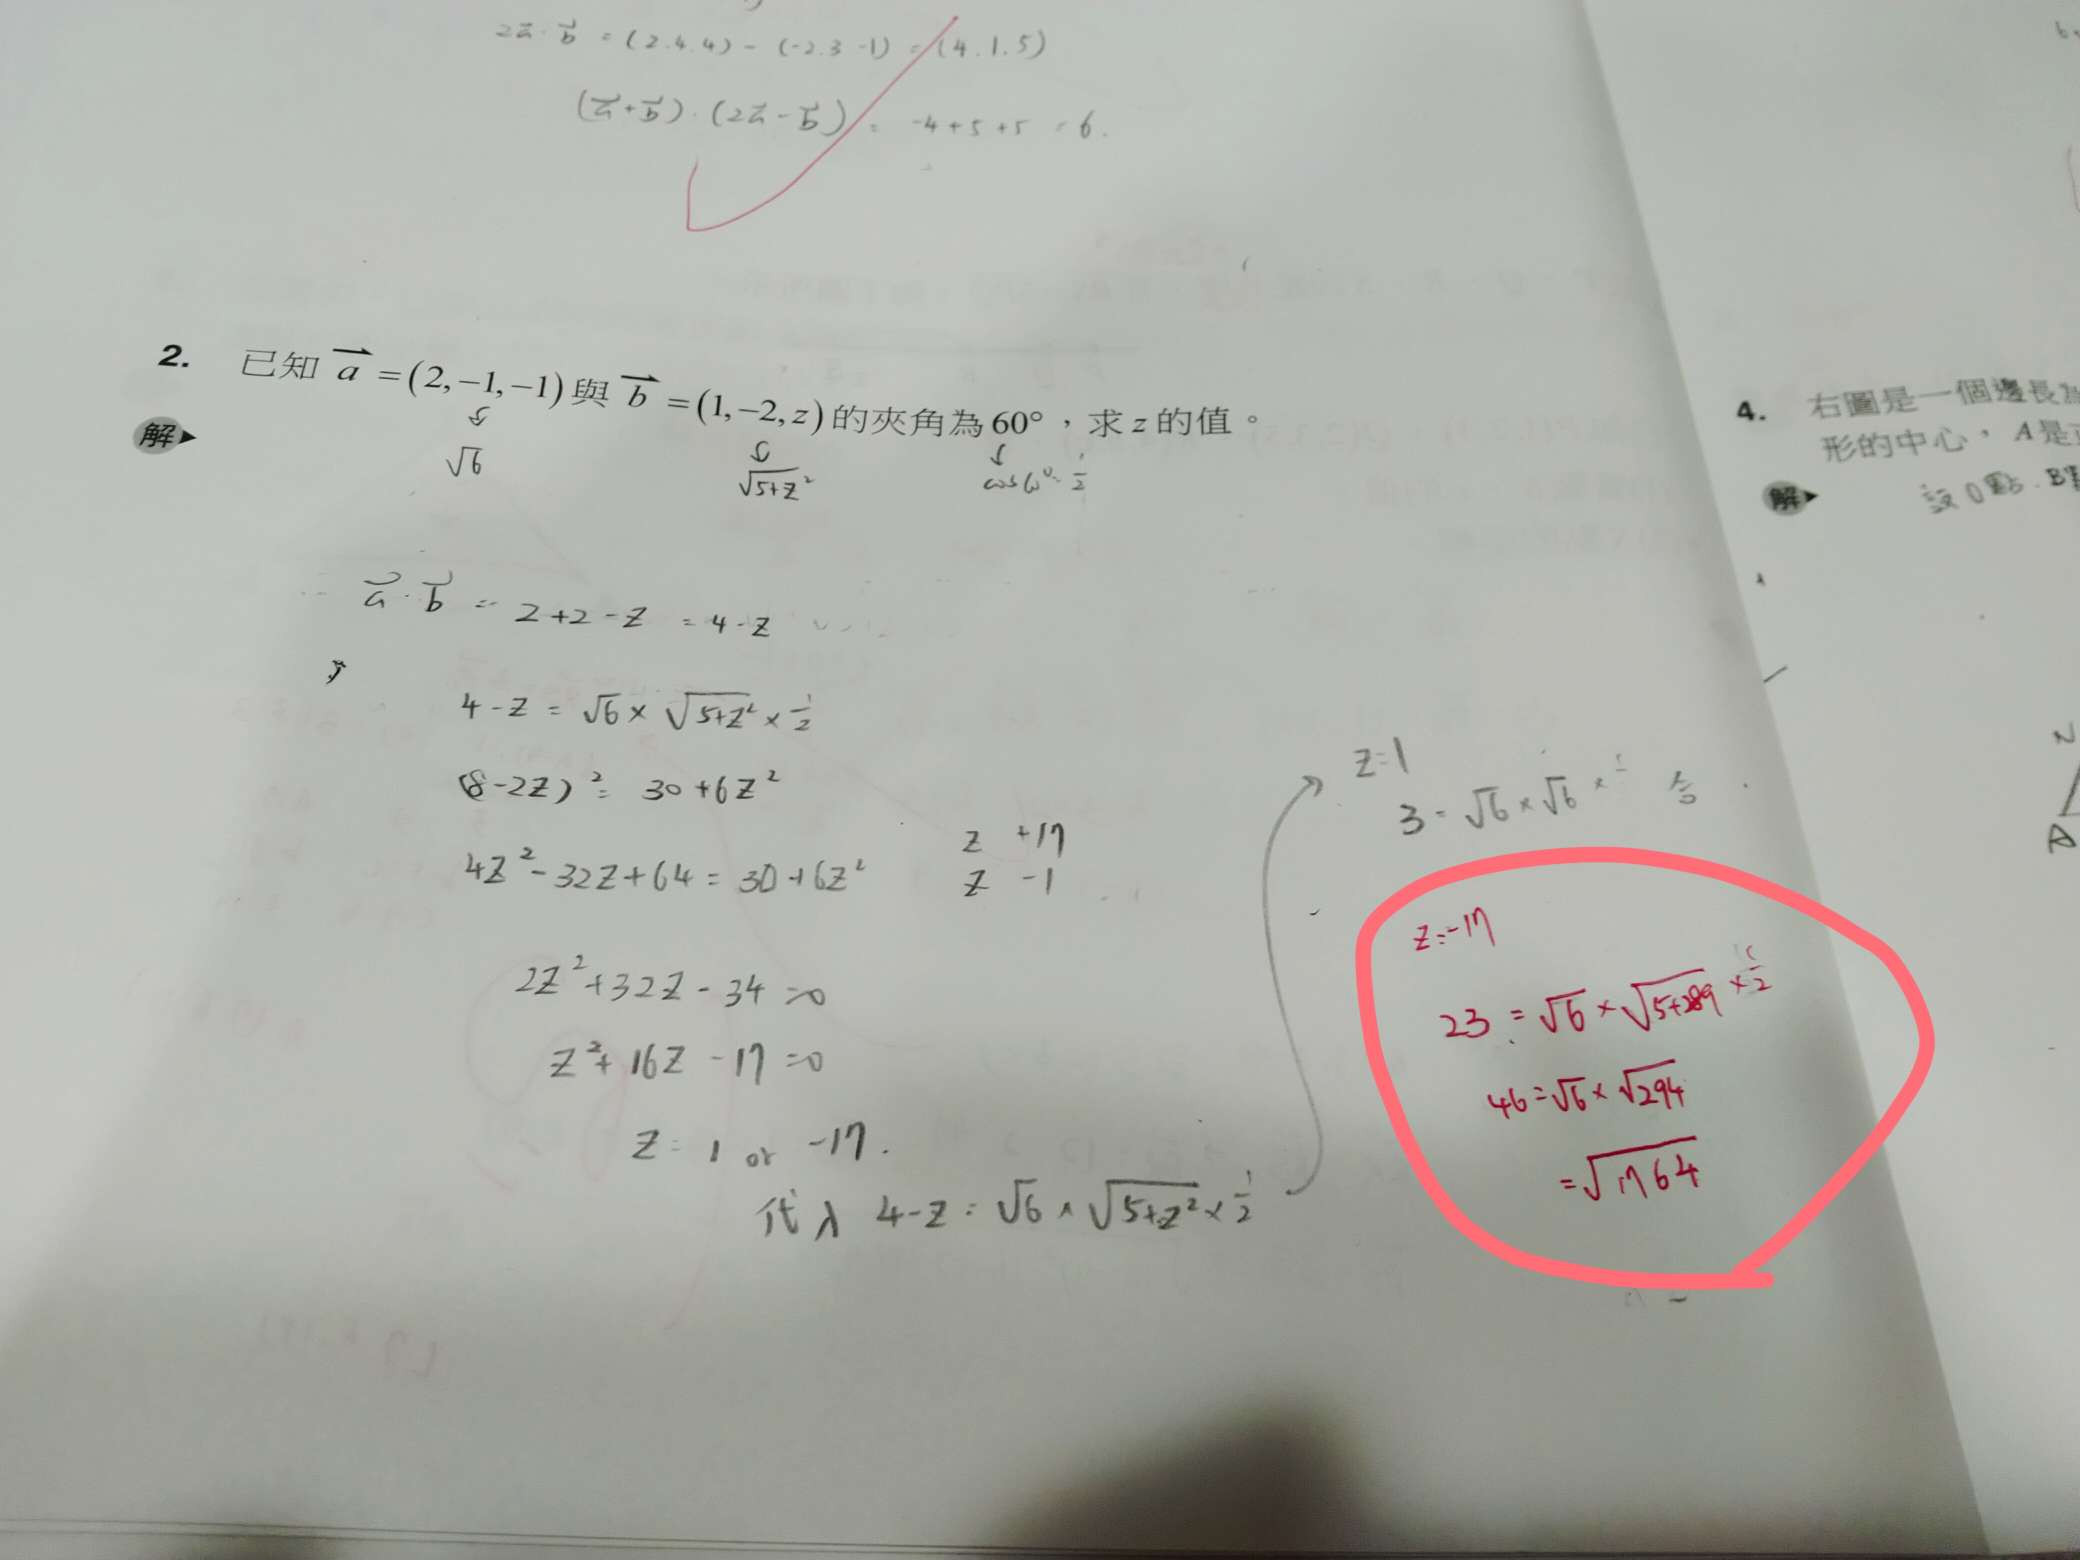 2a⃗·b⃗ = (2.4.4) - (-2.3 -1) = (4.1.5)
(a⃗+b⃗)·(2a⃗-b⃗) = -4+5+5 = 6.
2. 已知 a⃗ =(2,−1,−1)與 b⃗ =(1,−2,z)的夾角為60°，求z的值。
√6
√5+z²
cos60°= 1/2
解
a⃗·b⃗ = 2+2-z = 4-z
4-z = √6 × √5+z² × 1/2
(8-2z)² = 30+6z²
4z²-32z+64 = 30+6z²
z +17
z -1
2z²+32z-34=0
z²+16z-17=0
z = 1 or -17.
代入 4-z = √6 × √5+z² × 1/2
z=1
3 = √6 × √6 × 1/2 合
z=-17
23 = √6 × √5+289 × 1/2
46=√6×√294
=√1764
4. 右圖是一個邊長為
形的中心，A是
解
設O點.B
N
A